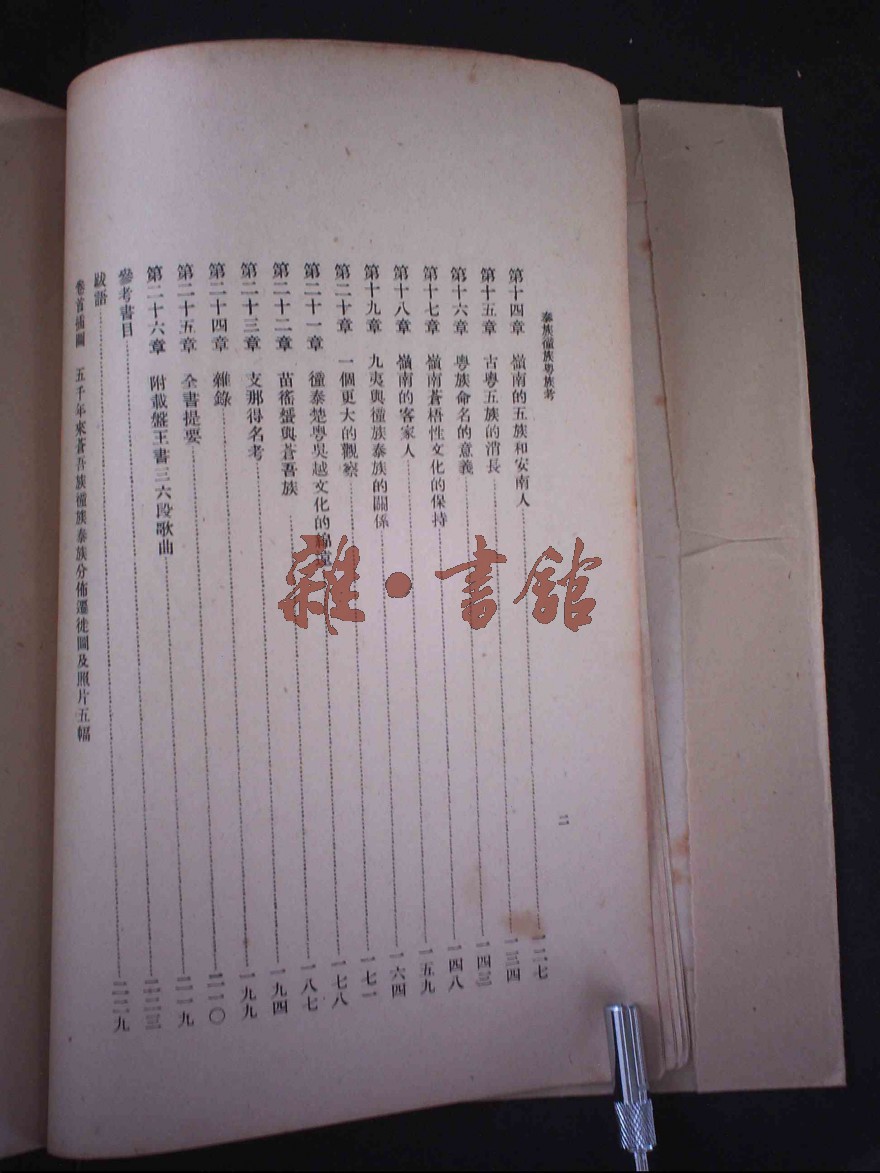 泰族僮族粵族考
二
第十四章 嶺南的五族和安南人 一二七
第十五章 古粵五族的消長 一三四
第十六章 粵族命名的意義 一四三
第十七章 嶺南蒼梧性文化的保持 一四八
第十八章 嶺南的客家人 一五九
第十九章 九夷與僮族泰族的關係 一六四
第二十章 一個更大的觀察 一七一
第二十一章 僮泰楚粵吳越文化的綿遠 一七八
第二十二章 苗徭蜑與蒼吾族 一八七
第二十三章 支那得名考 一九四
第二十四章 雜錄 一九九
第二十五章 全書提要 二一〇
第二十六章 附載盤王書三六段歌曲 二一九
參考書目 二二三
跋語 二二九
卷首插圖 五千年來蒼吾族僮族泰族分佈遷徙圖及照片五幅
雜·書館